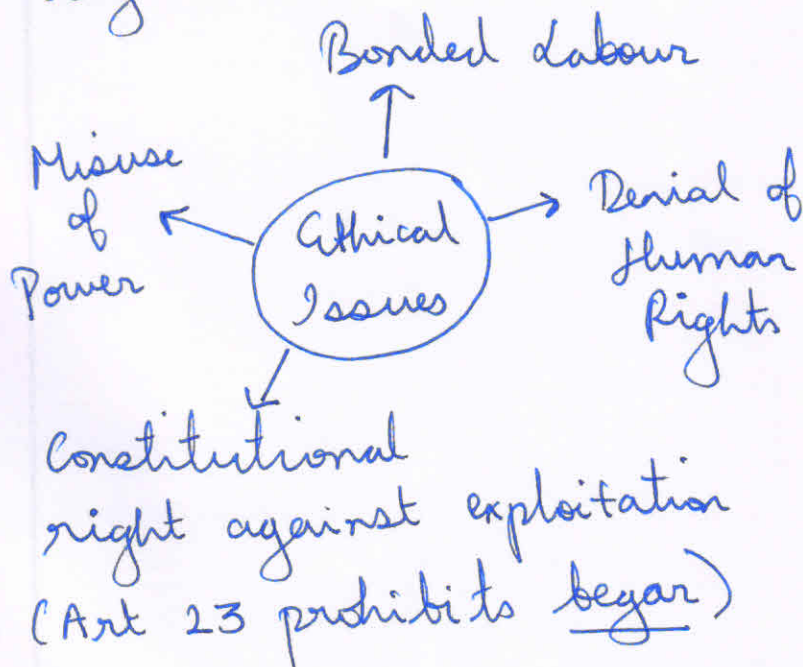 Bonded Labour
Misuse
of
Power
Ethical
Issues
Denial of
Human
Rights
Constitutional
right against exploitation
(Art 23 prohibits begar)